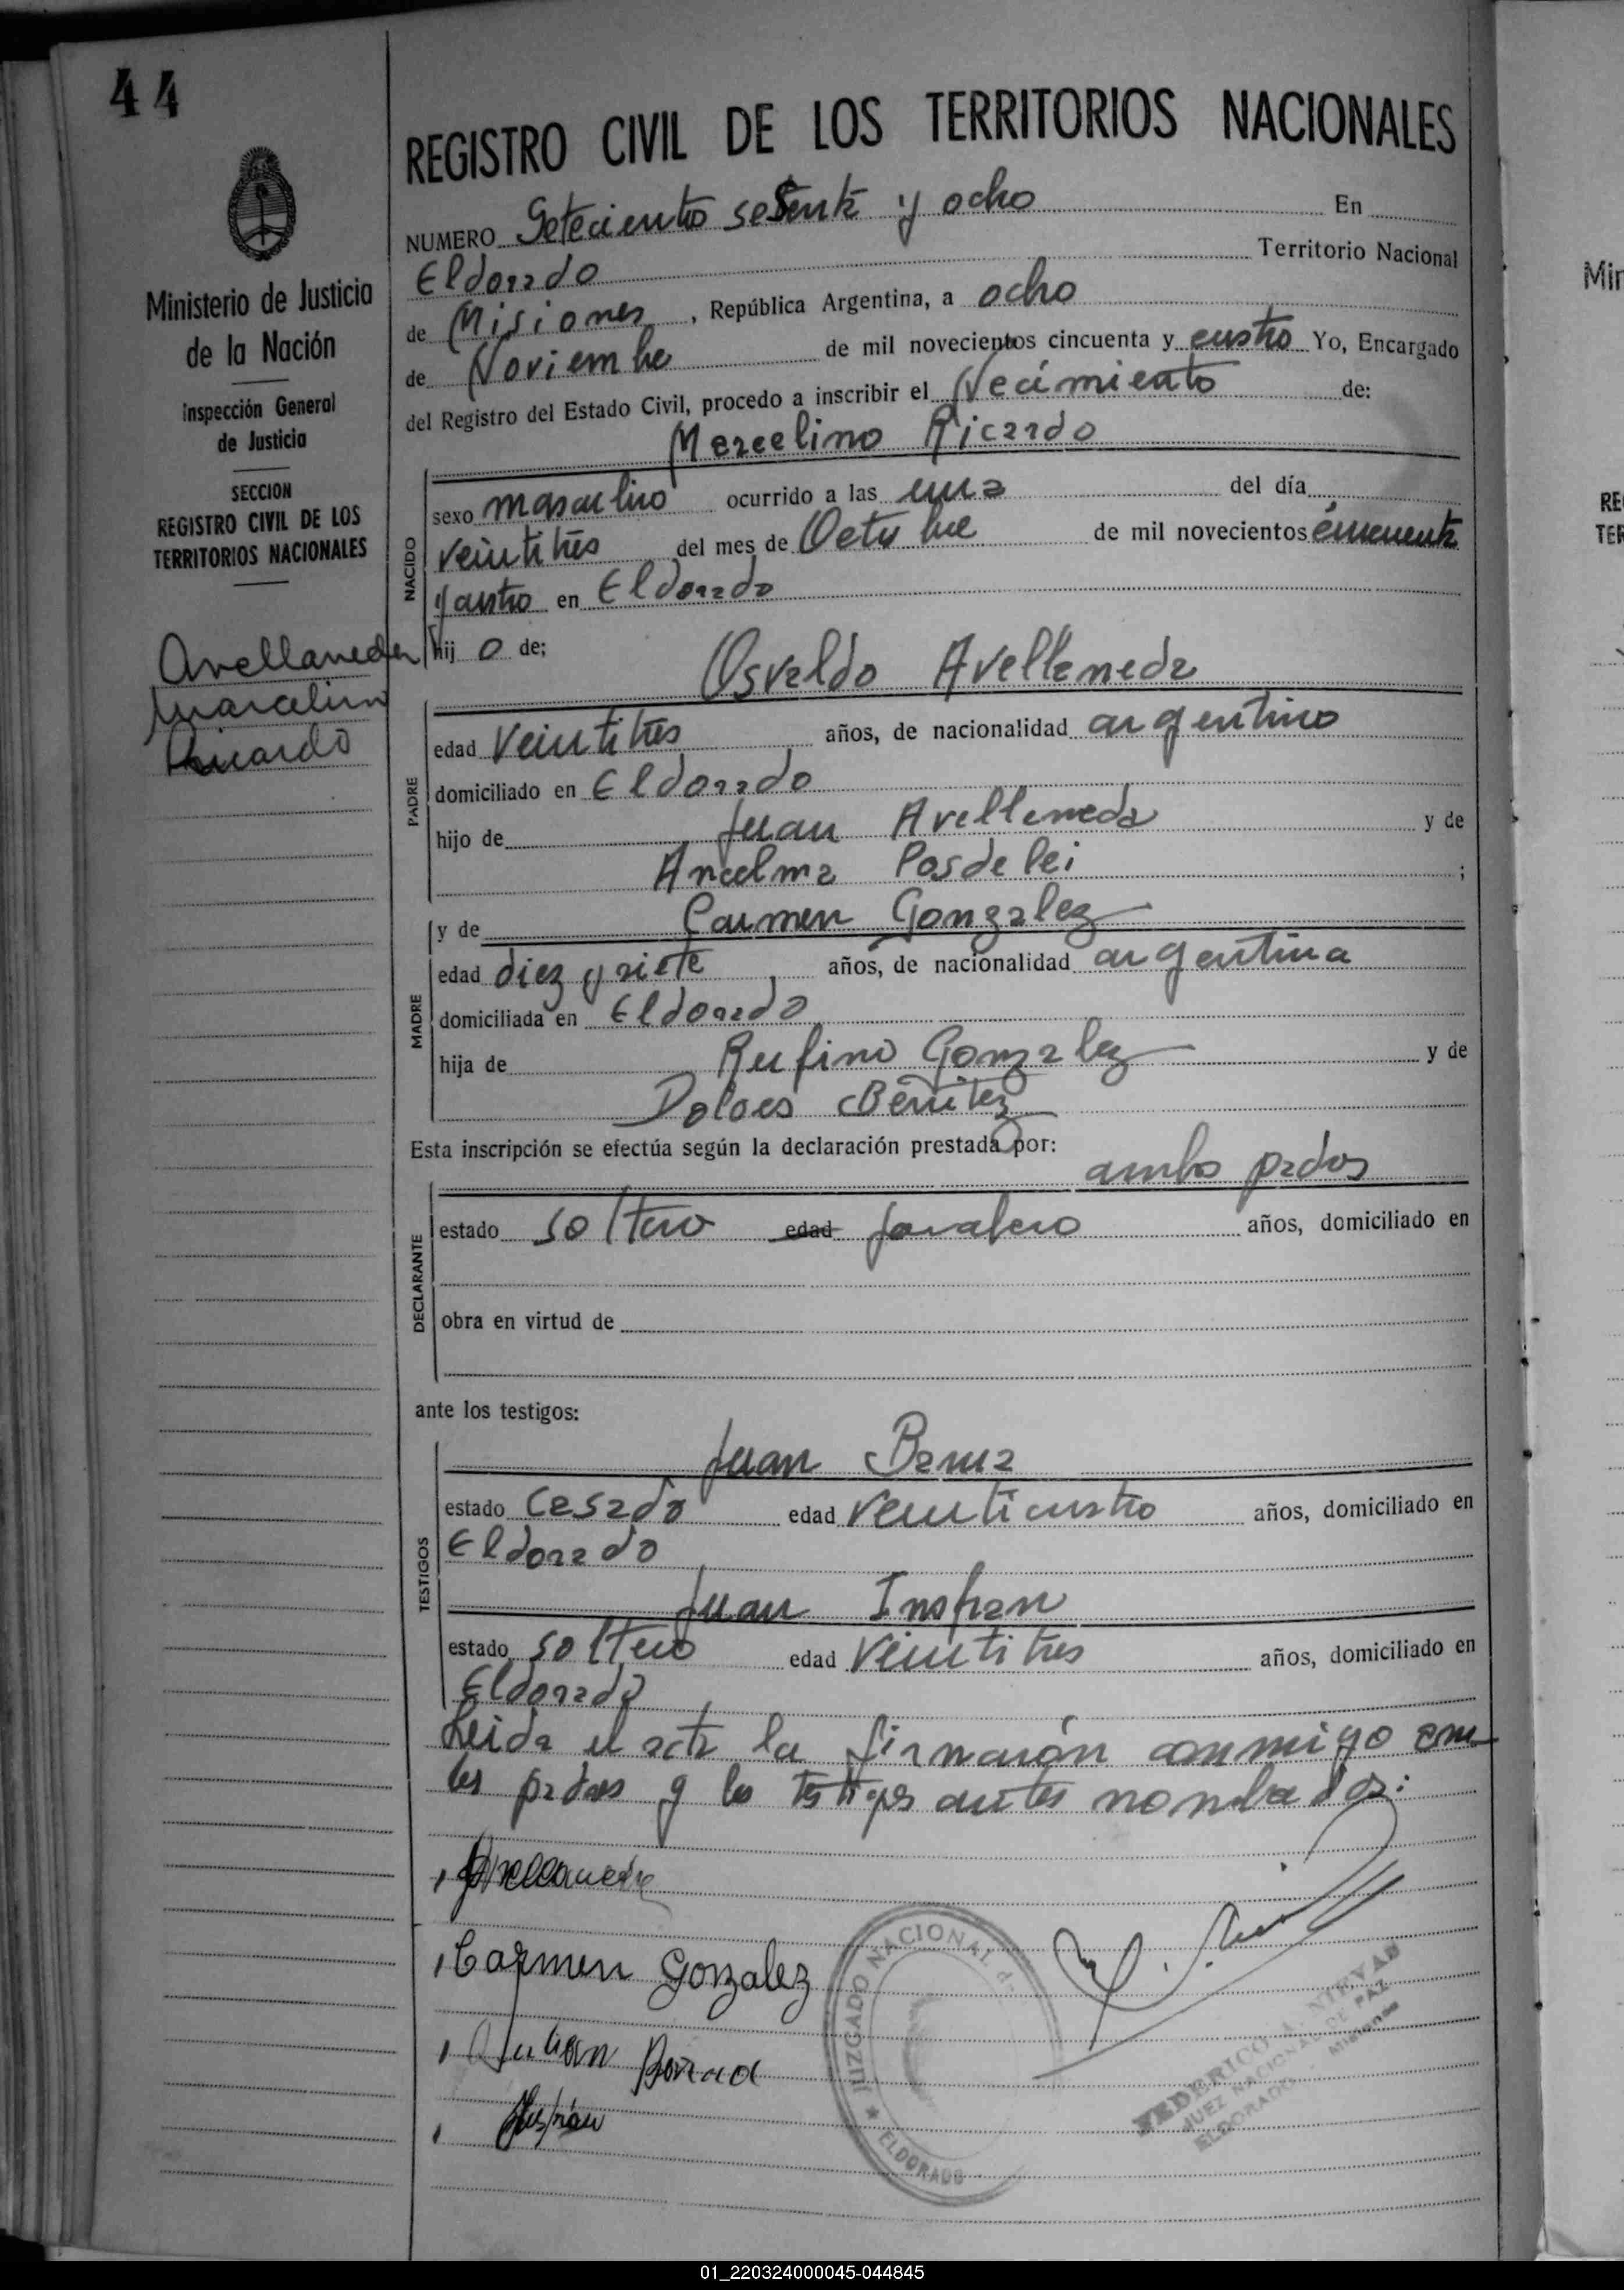 44
REGISTRO CIVIL DE LOS TERRITORIOS NACIONALES
NUMERO Setecientos sesenta y ocho En
Eldorado Territorio Nacional
de Misiones, República Argentina, a ocho
de Noviembre de mil novecientos cincuenta y cuatro Yo, Encargado
del Registro del Estado Civil, procedo a inscribir el Nacimiento de:
Marcelino Ricardo
Ministerio de Justicia
de la Nación
Inspección General
de Justicia
SECCION
REGISTRO CIVIL DE LOS
TERRITORIOS NACIONALES
Avellaneda
Marcelino
Ricardo
NACIDO
sexo masculino ocurrido a las una del día
veintitres del mes de Octubre de mil novecientos cincuenta
y cuatro en Eldorado
hij o de;
Osvaldo Avellaneda
PADRE
edad veintitres años, de nacionalidad argentino
domiciliado en Eldorado
hijo de Juan Avellaneda y de
Ancelma ;
y de Carmen Gonzalez
MADRE
edad diez y siete años, de nacionalidad argentina
domiciliada en Eldorado
hija de Rufino Gonzalez y de
Dolores Benitez
Esta inscripción se efectúa según la declaración prestada por:
ambos padres
DECLARANTE
estado soltero edad años, domiciliado en
obra en virtud de
ante los testigos:
TESTIGOS
Juan
estado casado edad veinticuatro años, domiciliado en
Eldorado
Juan Insfran
estado soltero edad veintitres años, domiciliado en
Eldorado
Leida el acta la firmarón conmigo
los padres y los testigos antes nombrados:
Avellaneda
Carmen Gonzalez
Insfrán
JUZGADO NACIONAL de
ELDORADO
FEDERICO A. NIEVAS
JUEZ NACIONAL DE PAZ
ELDORADO - Misiones
Min
RE
TER
01_220324000045-044845